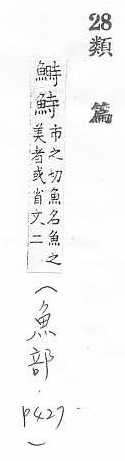 28類篇
鰣鮬市之切魚名魚之
美者或省文二
(魚部 p427)